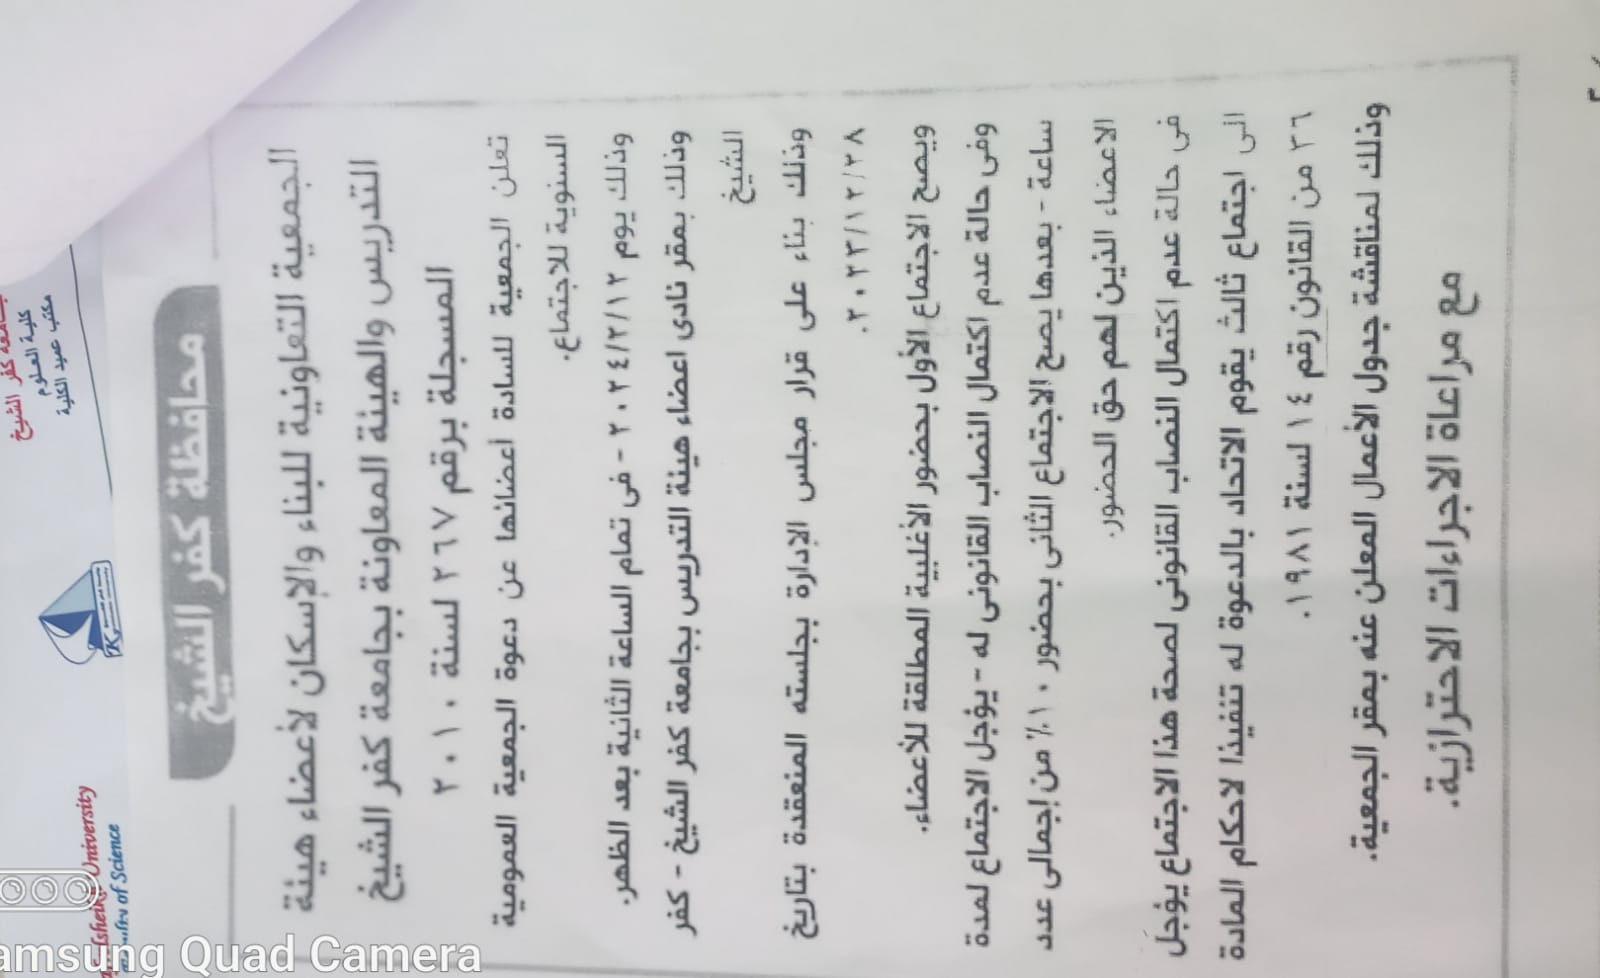 جامعة كفر الشيخ
كلية العلوم
مكتب عميد الكلية
University
of Science
محافظة كفر الشيخ
الجمعية التعاونية للبناء والإسكان لأعضاء هيئة
التدريس والهيئة المعاونة بجامعة كفر الشيخ
المسجلة برقم ٢٦٧ لسنة ٢٠١٠
تعلن الجمعية للسادة أعضائها عن دعوة الجمعية العمومية
السنوية للاجتماع.
وذلك يوم ٢٠٢٤/٢/١٢ - فى تمام الساعة الثانية بعد الظهر.
وذلك بمقر نادى اعضاء هيئة التدريس بجامعة كفر الشيخ - كفر
الشيخ
وذلك بناء على قرار مجلس الإدارة بجلسته المنعقدة بتاريخ
٢٠٢٣/١٢/٢٨.
ويصح الاجتماع الأول بحضور الأغلبية المطلقة للأعضاء.
وفى حالة عدم اكتمال النصاب القانونى له - يؤجل الاجتماع لمدة
ساعة - بعدها يصح الاجتماع الثانى بحضور ١٠٪ من إجمالى عدد
الاعضاء الذين لهم حق الحضور.
فى حالة عدم اكتمال النصاب القانونى لصحة هذا الاجتماع يؤجل
الى اجتماع ثالث يقوم الاتحاد بالدعوة له تنفيذا لاحكام المادة
٣٦ من القانون رقم ١٤ لسنة ١٩٨١.
وذلك لمناقشة جدول الأعمال المعلن عنه بمقر الجمعية.
مع مراعاة الاجراءات الاحترازية.
Samsung Quad Camera